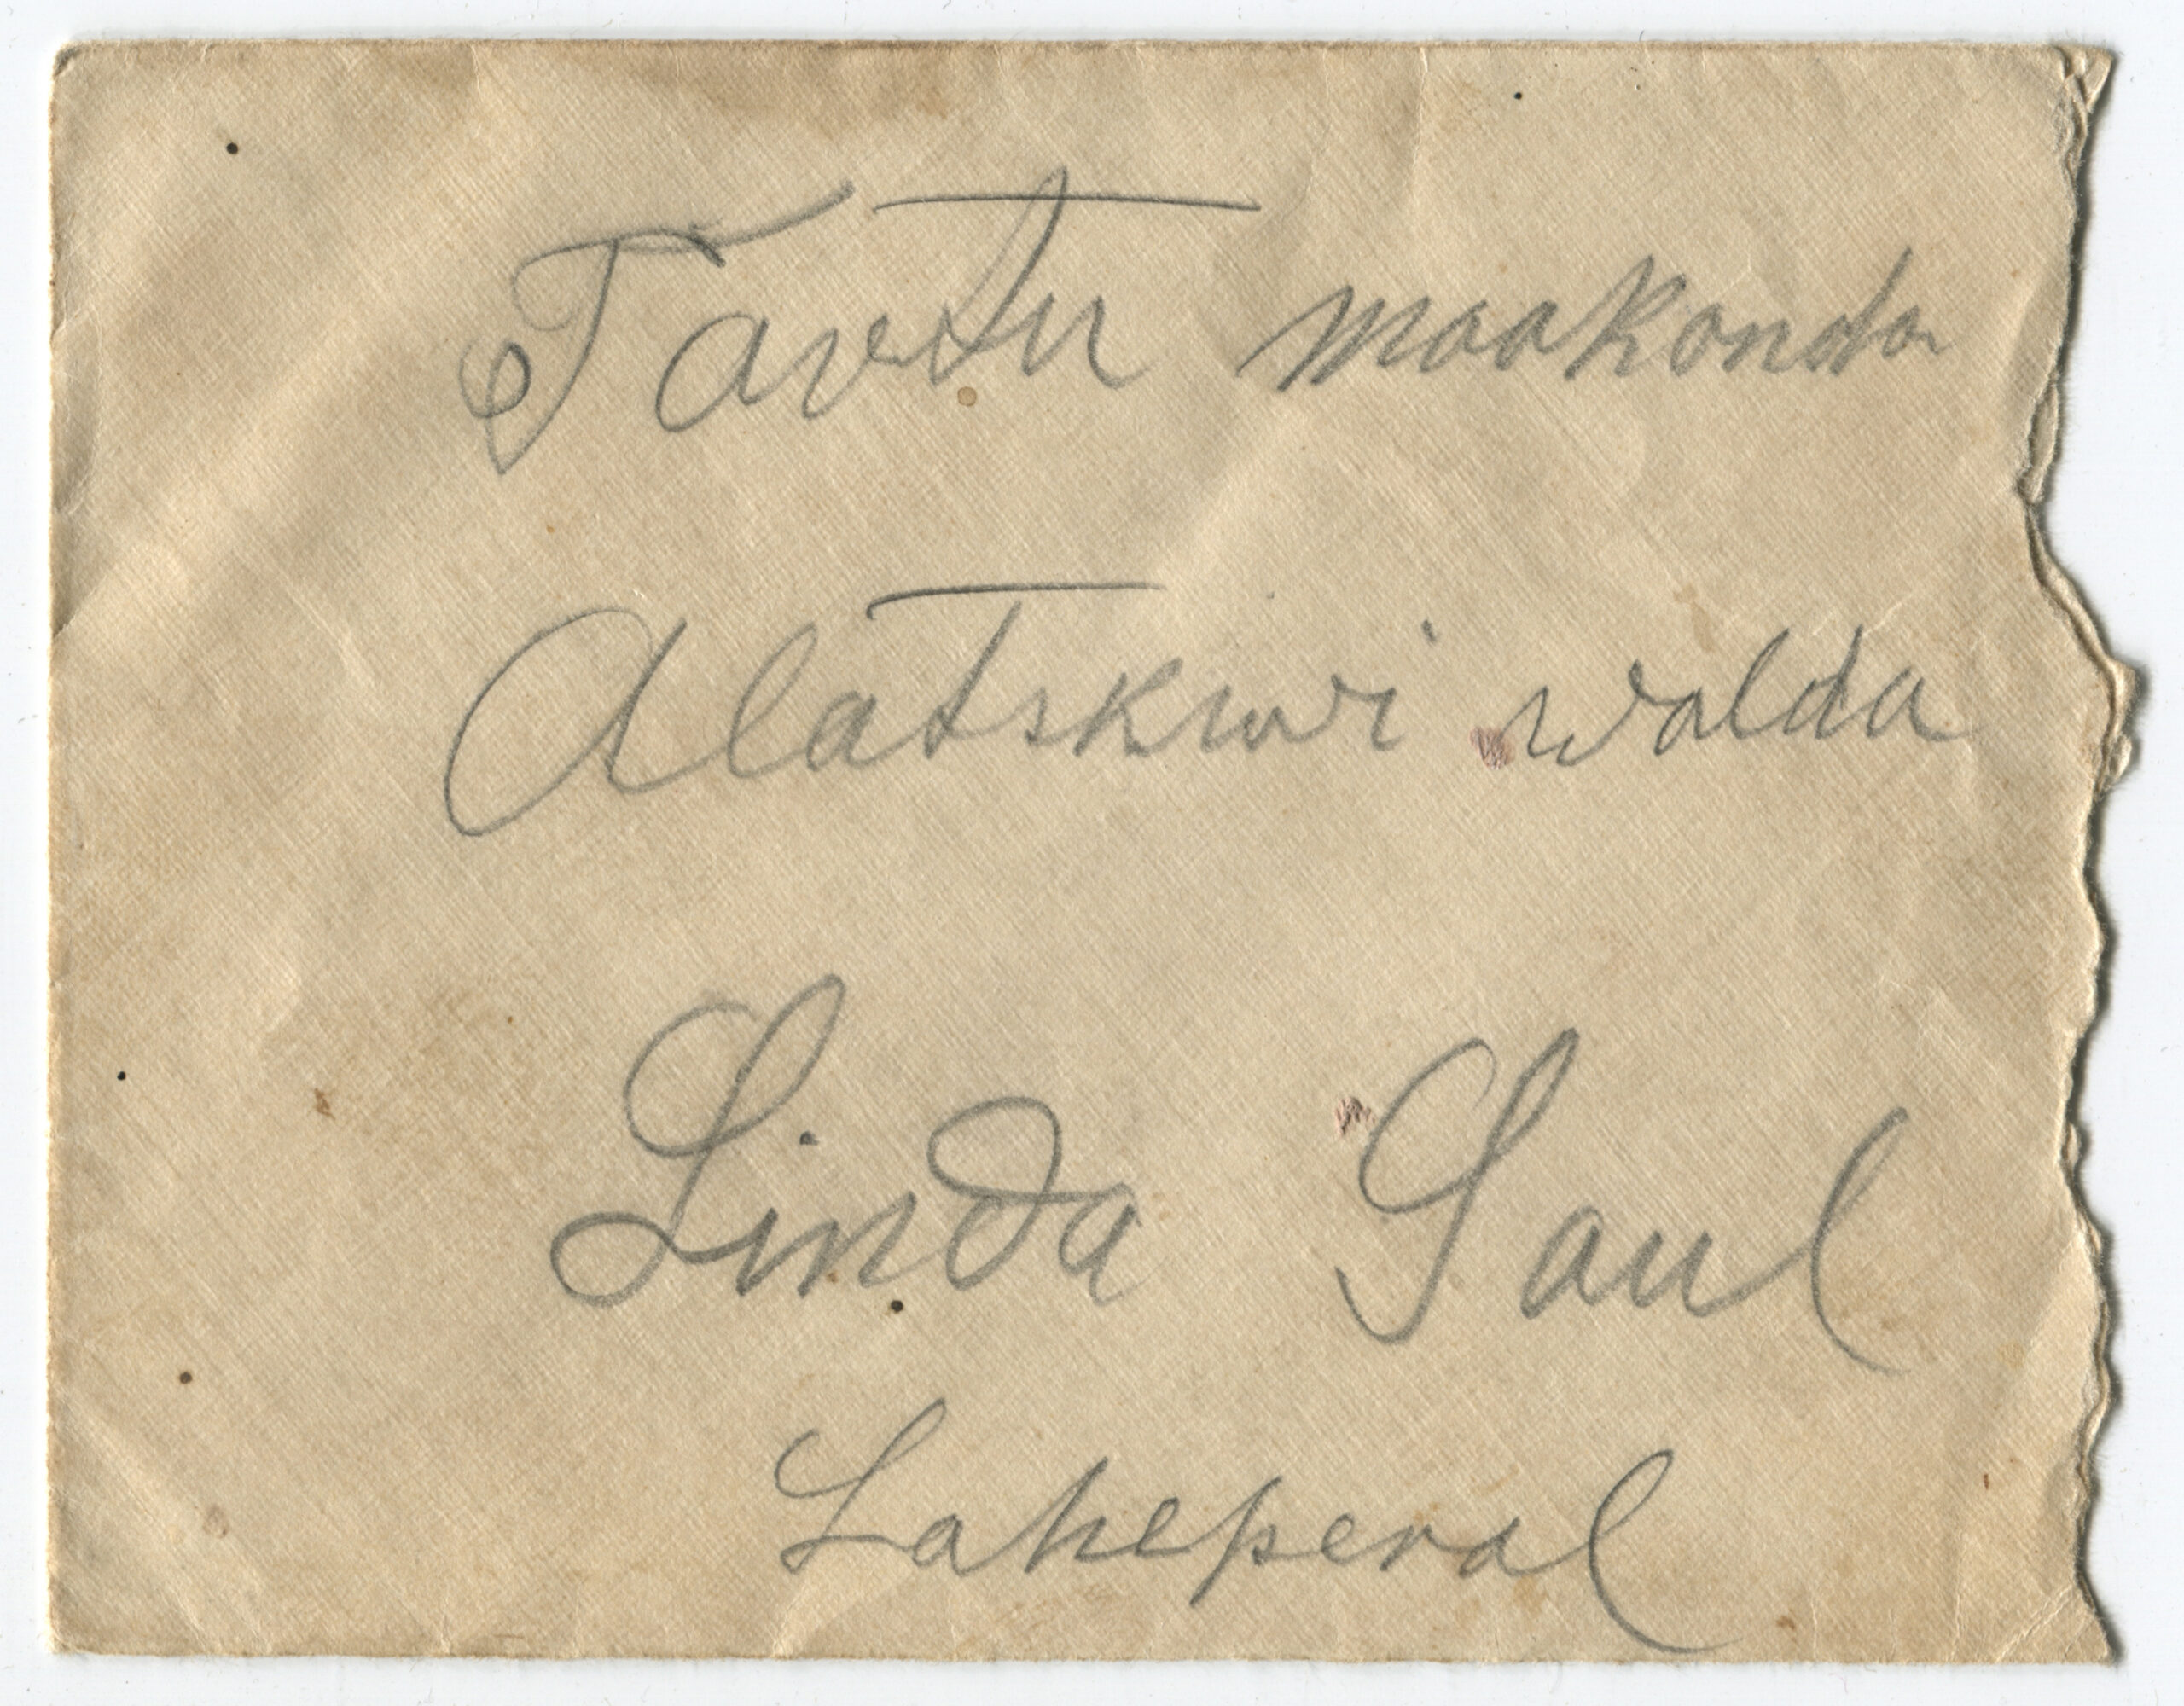 Tartu maakonda
Alatskiwi walda
Linda Saul
Laheperal